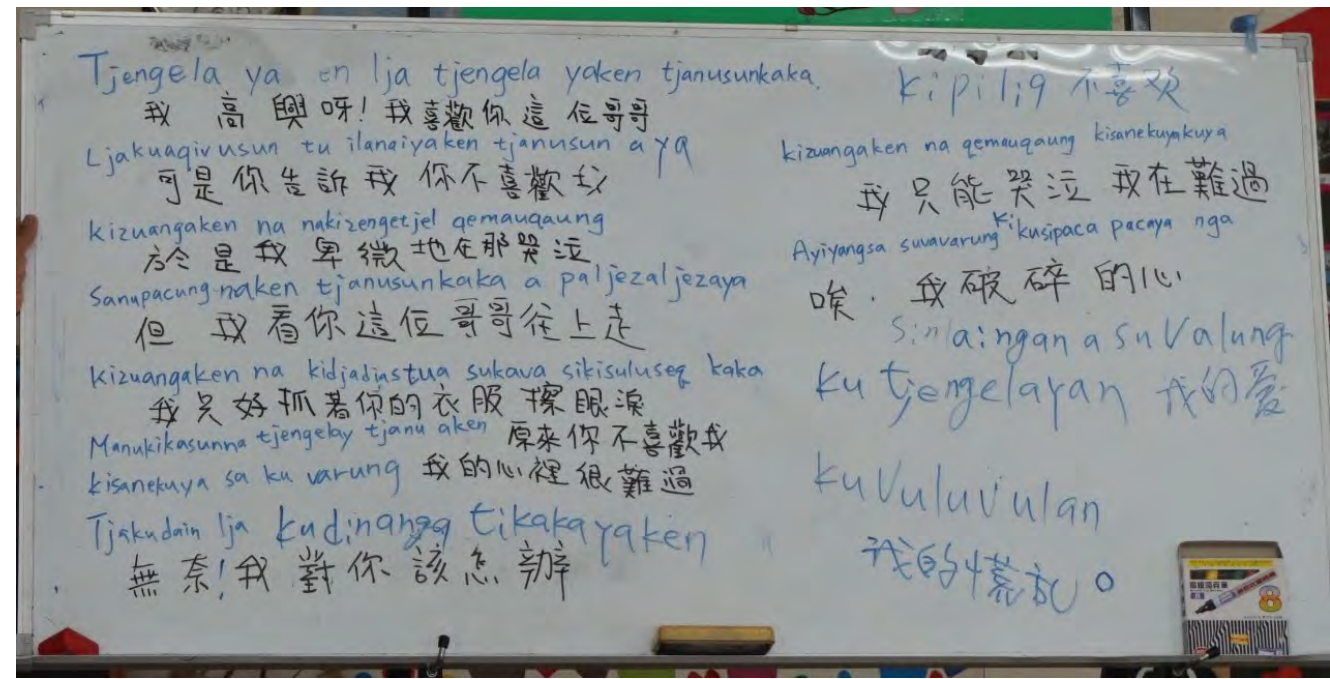 Tjengela ya en lja tjengela yaken tjanusunkaka.
我 高興呀！我喜歡你這位哥哥
Ljakuaqivusun tu ilanaiyaken tjanusun aya
可是你告訴我你不喜歡我
kizuangaken na nakizengetjel qemauqaung
於是我卑微地在那哭泣
Sanupacung naken tjanusunkaka a paljezaljezaya
但我看你這位哥哥往上走
Kizuangaken na kidjadjastua sukava sikisuluseq kaka
我只好抓著你的衣服擦眼淚
Manukikasunna tjengelay tjanu aken 原來你不喜歡我
kisanekuya sa ku varung 我的心裡很難過
Tjakudain lja kudinanga tikakayaken
無奈！我對你該怎辦
kipiliq 不喜欢
kizuangaken na qemauqaung kisanekuyakuya
我只能哭泣 我在難過
Ayiyangsa suvavarung ki kusipaca pacaya nga
唉．我破碎的心
sinlaingan a su valung
ku tjengelayan 我的爱
ku vuluvulan
我的慌乱。
8